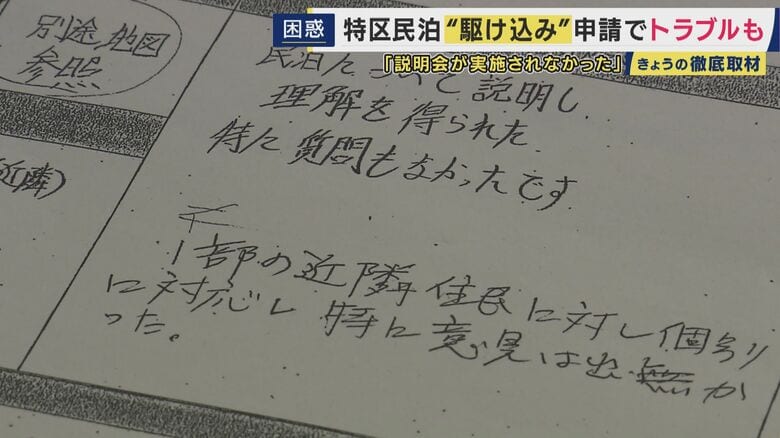 困惑 特区民泊“駆け込み”申請でトラブルも
「説明会が実施されなかった」 きょうの徹底取材
別途地図
参照
民泊について説明し
理解を得られた
特に質問もなかったです
近隣)
1部の近隣住民に対し個別
に対応し 特に意見は出無か
った。